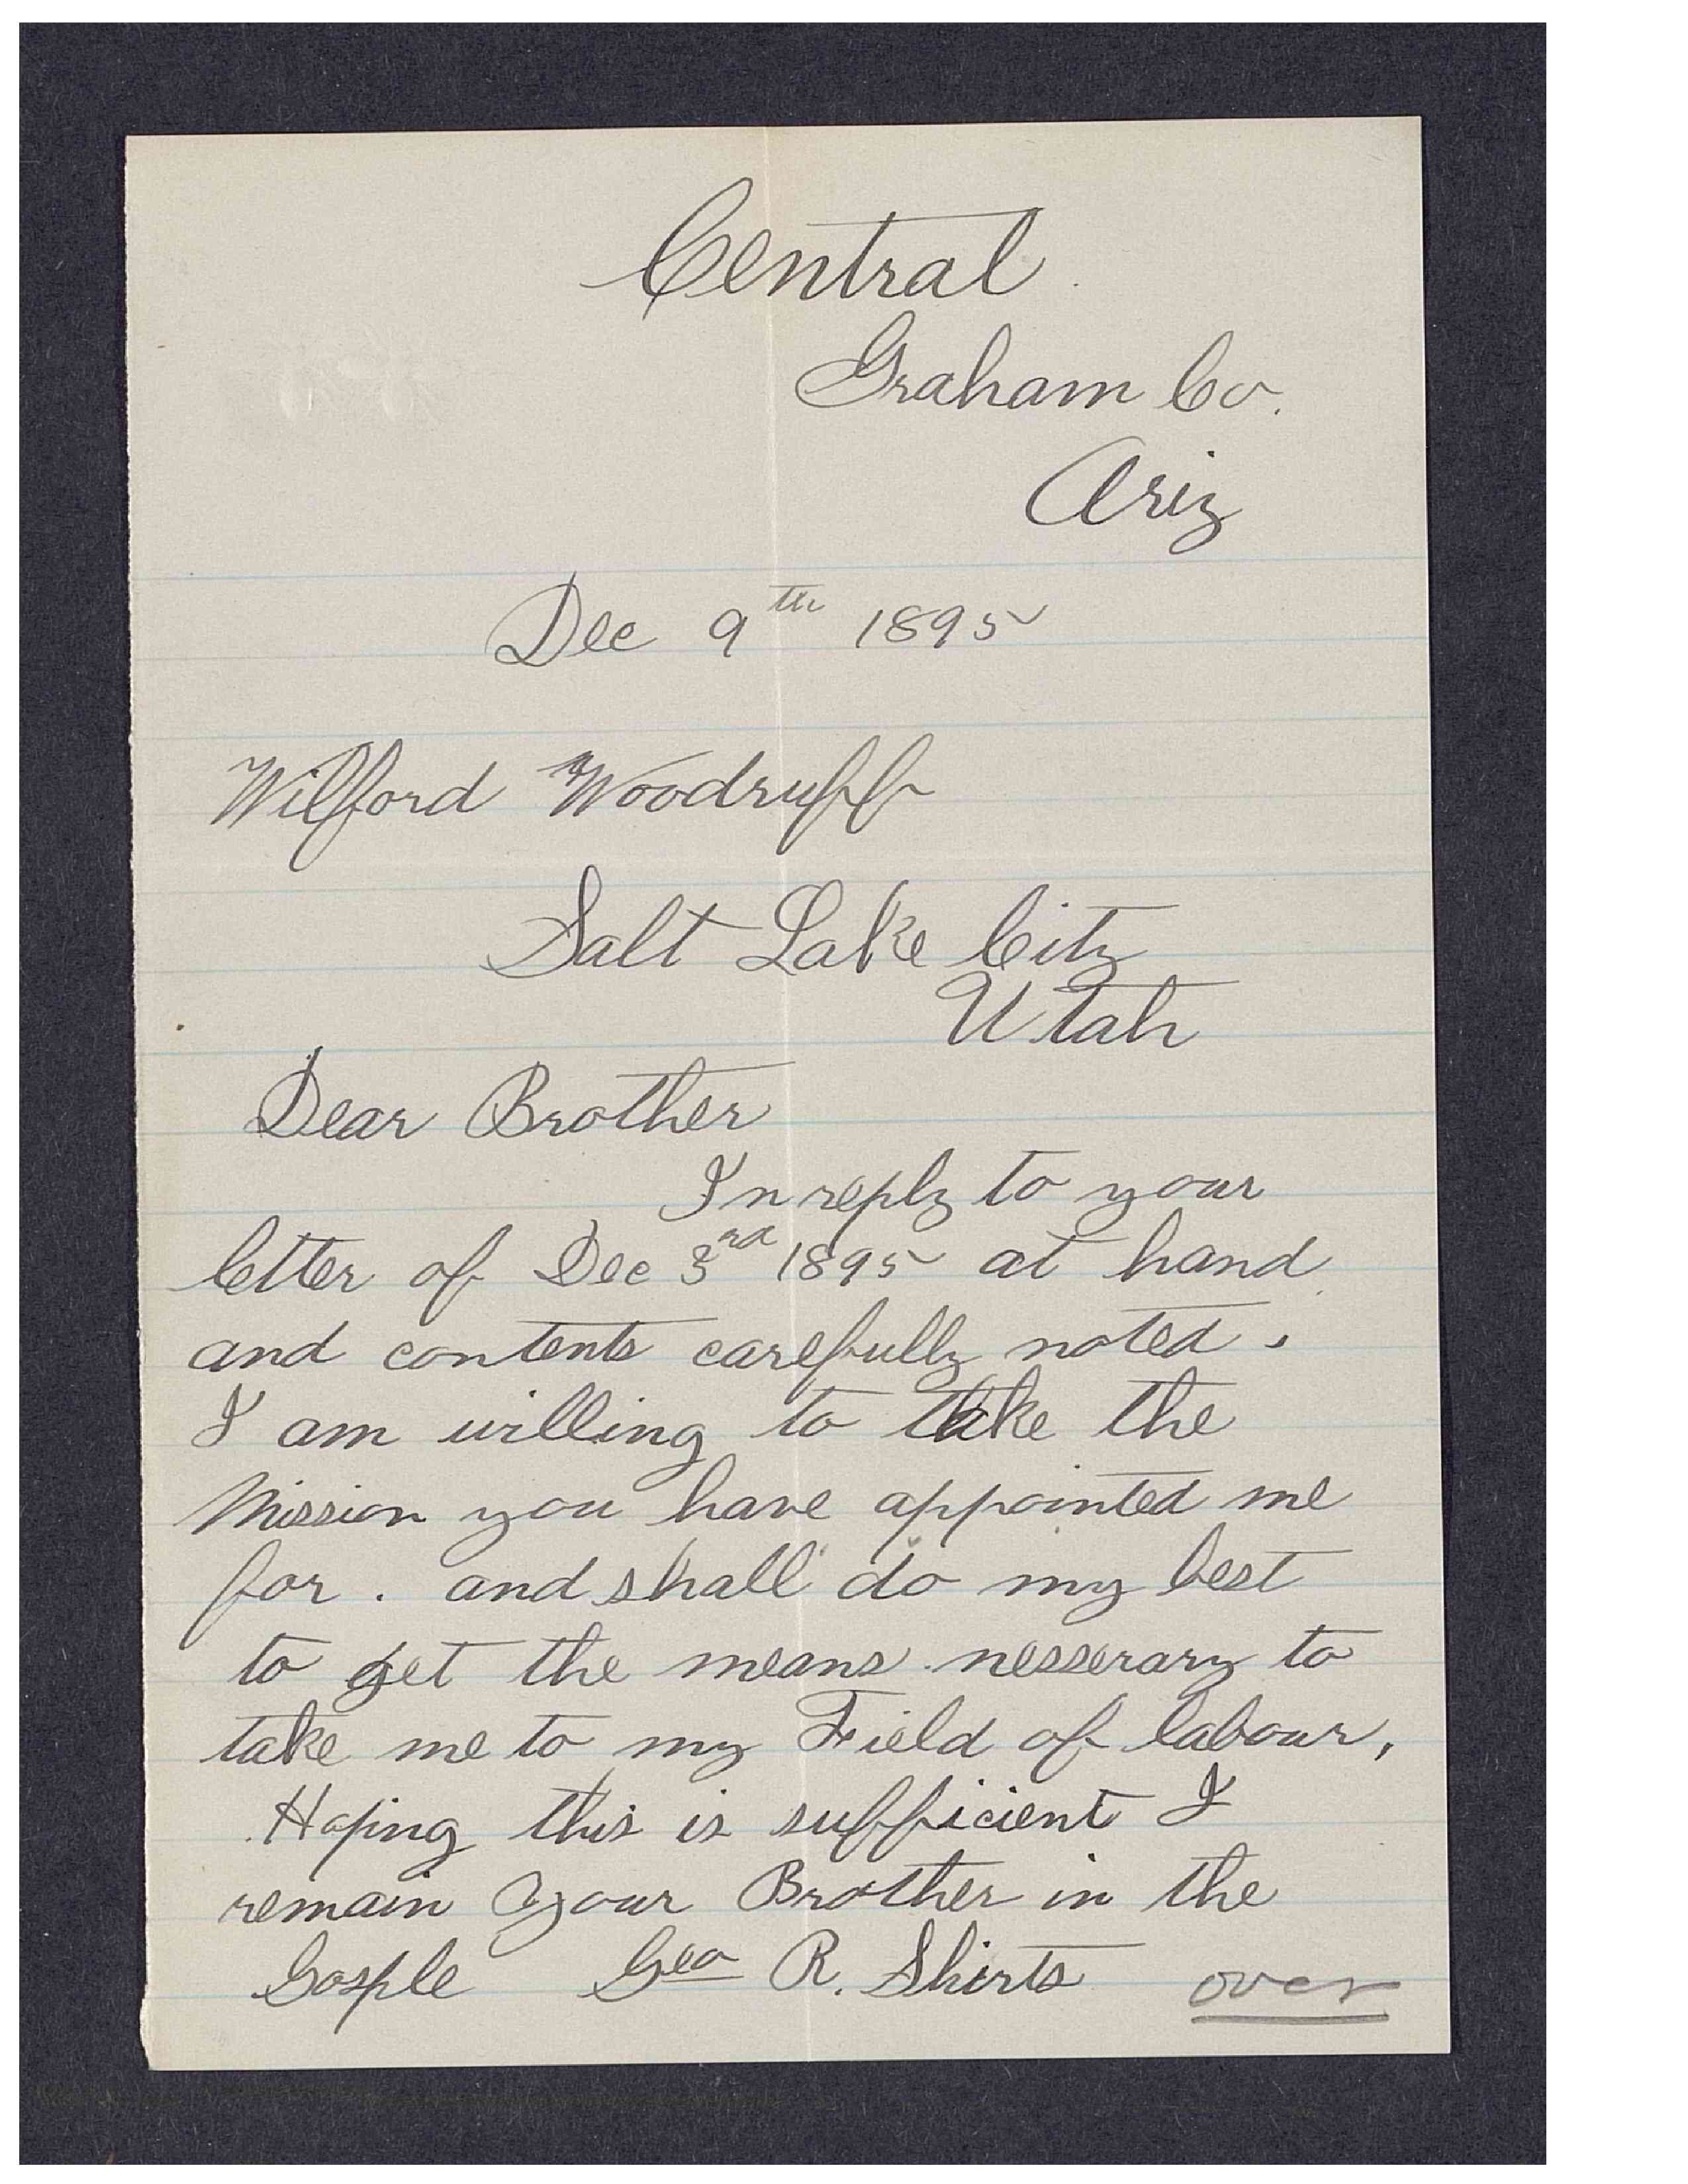 Central
Graham Co.
Ariz
Dec 9th 1895
Wilford Woodruff
Salt Lake City
Utah
Dear Brother
In reply to your
letter of Dec 3rd 1895 at hand
and contents carefully noted.
I am willing to take the
Mission you have appointed me
for. and shall do my best
to get the means nesserary to
take me to my Field of labour,
Hoping this is sufficient I
remain Your Brother in the
Gosple Geo R. Shirts over